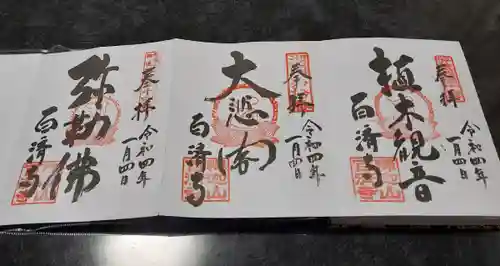 奉拝
植木観音
百済寺
令和四年
一月四日
奉拝
大悲閣
百済寺
令和四年
一月四日
奉拝
弥勒佛
百済寺
令和四年
一月四日